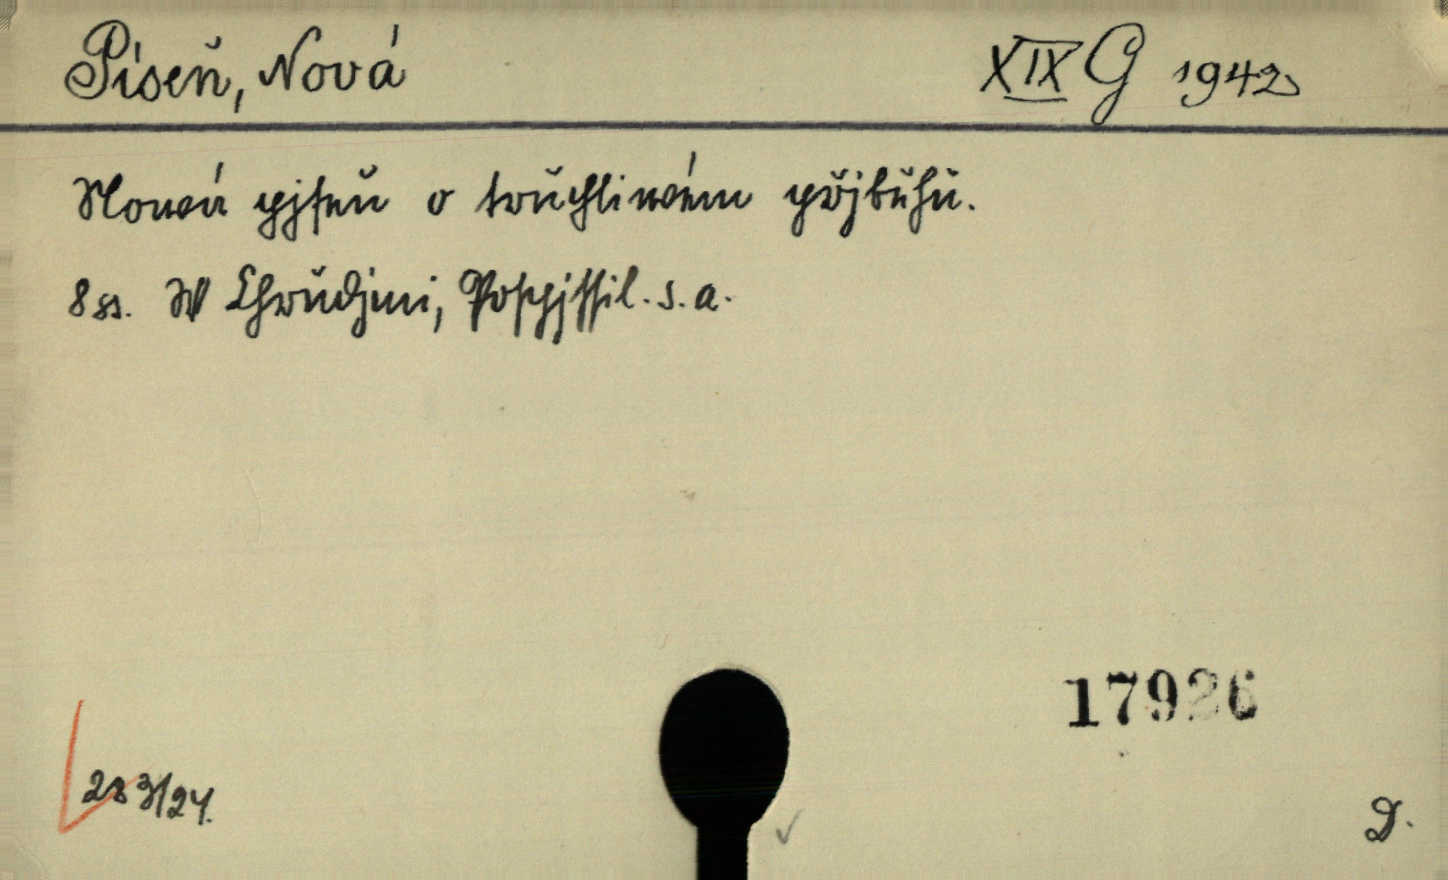 Píseň, Nová XIX G 1942
Nowá pjseň o truchliwém přjběhu.
8 ss. W Chrudjmi, Pospjssil. s. a.
17926
283/24.
D.